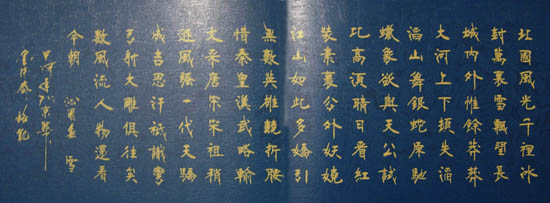 北國風光千裡冰
封萬裏雪飄望長
城內外惟餘莽莽
大河上下頓失滔
滔山舞銀蛇原馳
蠟象欲與天公試
比高須晴日看紅
裝素裹分外妖嬈
江山如此多嬌引
無數英雄競折腰
惜秦皇漢武略輸
文采唐宗宋祖稍
遜風騷一代天驕
成吉思汗祗識彎
弓射大雕俱往矣
數風流人物還看
今朝 沁園春 雪